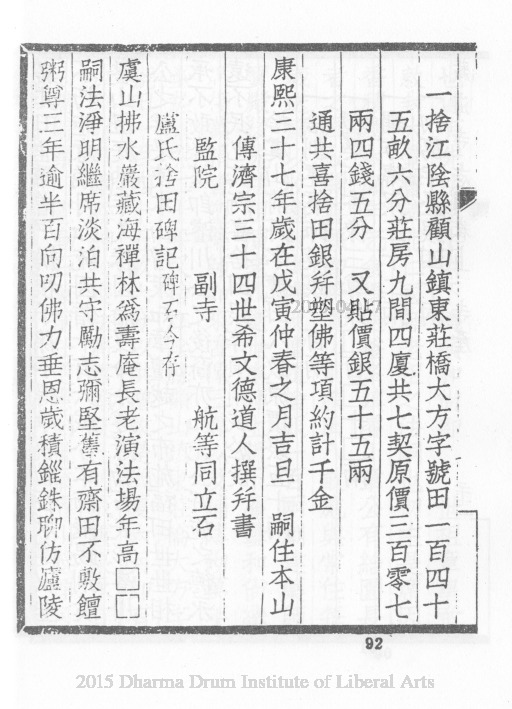 一捨江陰縣顧山鎮東莊橋大方字號田一百四十
五畝六分莊房九間四廈共七契原價三百零七
兩四錢五分　又貼價銀五十五兩
通共喜捨田銀幷塑佛等項約計千金
康熙三十七年歲在戊寅仲春之月吉旦　嗣住本山
傳濟宗三十四世希文德道人撰幷書
監院　副寺　航等同立石
盧氏捨田碑記碑石今存
虞山拂水巖藏海禪林爲壽庵長老演法場年高□□
嗣法淨明繼席淡泊共守勵志彌堅舊有齋田不敷饘
粥尊三年逾半百向叨佛力垂恩歲積錙銖聊仿廬陵
92
2015 Dharma Drum Institute of Liberal Arts